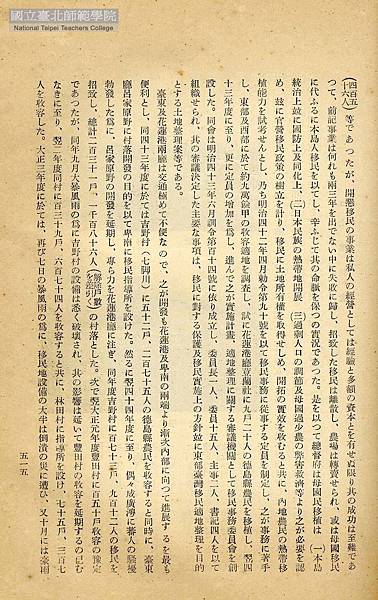 國立臺北師範學院
National Taipei Teachers College
(四百五十六人)等であつたが、開墾移民の事業は私人の經營としては經驗と多額の資本とを有せぬ限り其の成功は至難であ
つて、前記事業は何れも兩三年を出でない中に失敗に歸し、招致した移民は離散し、農場は轉賣せられ、或は母國移民
に代ふるに本島人移民を以てし、辛ふじて其の命脈を保つの實況であつた。是を以つて總督府は母國民移植は (一)本島
統治上竝に國防上及同化上、(二)日本民族の熱帶地開發 (三)過剩人口の調節及母國過少農の弊害救濟等より之が必要を認
め、玆に官營移民政策の樹立を計り、移民に土地所有權を取得せしめ、開拓の實效を收むると共に、內地農民の熱帶移
植能力を試考せんとし、乃ち明治四十二年四月勅令第九十號を以て移民事務に從事する定員を制定し、之が事務に著手
し、東部及西部に於て約九萬餘甲の收容適地を調査し、試に花蓮港廳荳蘭社に九戶二十人の德島縣農民を移植し、翌四
十三年度に至り、更に定員の增加を爲し、進んで之が實施計畫、適地整理に關する審議機關として移民事務委員會を創
設した。同會は明治四十三年六月訓令第百十四號に依り成立し、委員長一人、委員十五人、主事一人、書記四人を以て
組織せられ、其の審議決定した主要な事項は、移民に對する保護及移民實施上の方針竝に東部臺灣移民適地整理を目的
とする土地整理案等である。
臺東及花蓮港兩廳は交通極めて不便なので、之が開發も花蓮港及卑南の兩端より漸次內部に向つて進展するを最も
便利とし、同四十三年度に於ては吉野村(七脚川)に五十二戶、二百七十五人の德島縣農民を收容すると同時に、臺東
廳呂家原野に村落開發の目的を以て卑南に移民指導所を設けた。然るに翌四十四年度に至り、偶々成廣澳に蕃人の騷擾
勃發した爲に、呂家原野の開發を延期し、專ら力を花蓮港廳に注ぎ、同年度吉野村に百七十三戶、九百十二人の移民を
招致し、總計二百三十一戶、一千百八十六人の村落とした。次で翌大正元年度豐田村に百五十戶收容の豫定
であつたが、同年九月大暴風雨の爲に吉野村の設備は悉く破壞され、其の影響は延いて豐田村の收容を延期するの已む
なきに至り、翌二年度同村に百三十九戶、六百七十四人を收容すると共に、林田村に指導所を設け、七十五戶、三百七
人を收容した。大正三年度に於ては、再び七月の暴風雨の爲に、移民地設備の大半は倒潰の災に遭ひ、又十月には豪雨
五一五